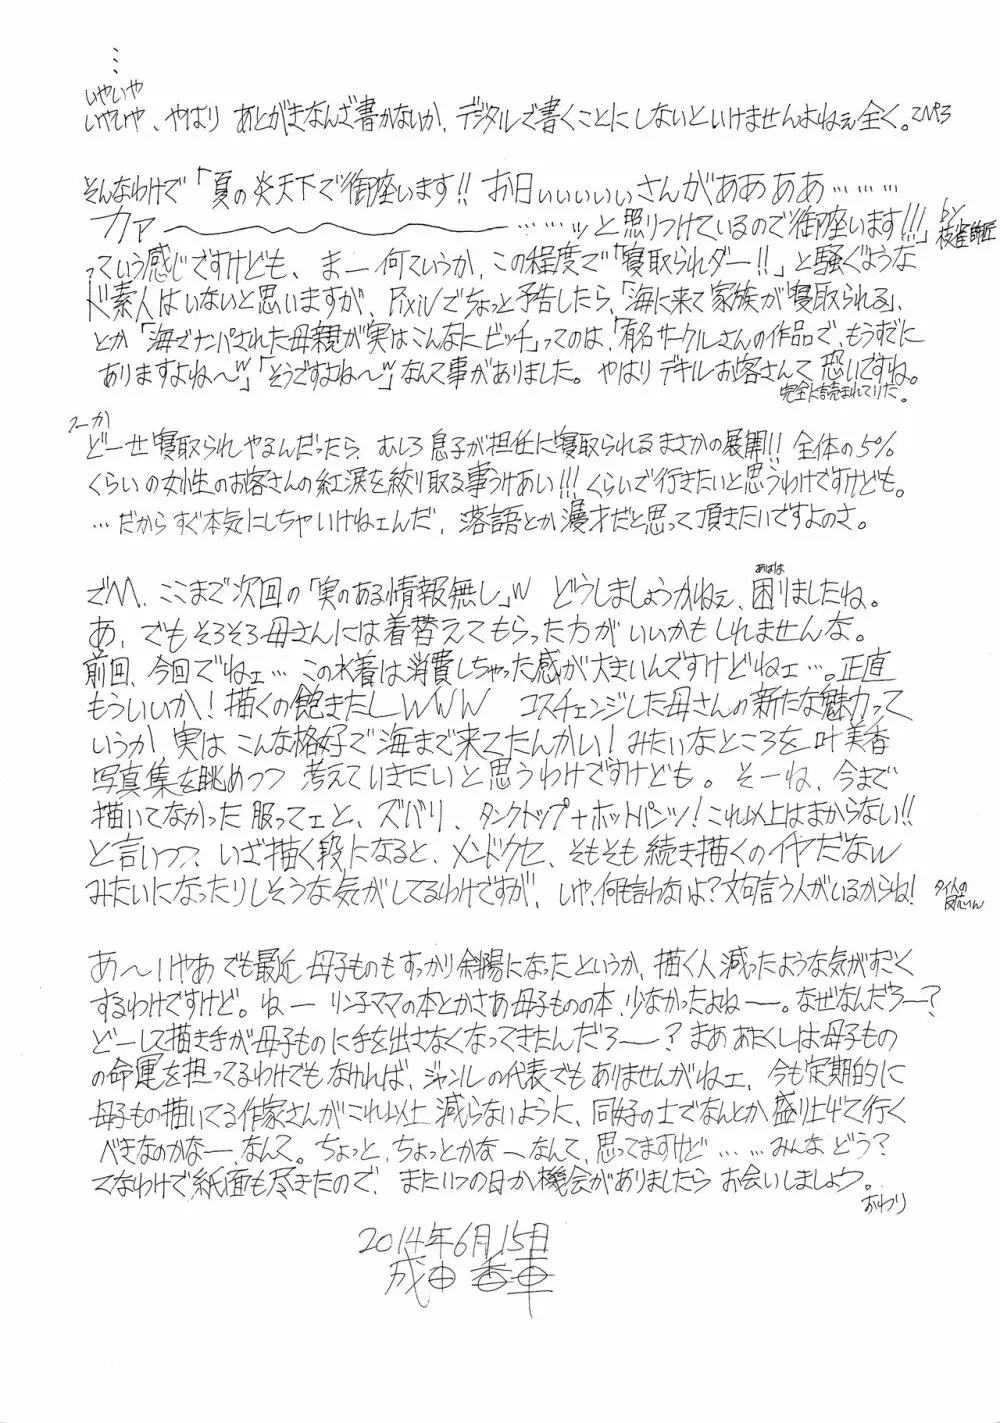 …
いやいや
いやいや、やはり あとがきなんざ書かないか、デジタルで書くことにしないといけませんよねぇ全く。
そんなわけで「夏の炎天下で御座います!! お日ぃぃぃぃぃさんがああああ………
カァ〜〜〜……ッと照りつけているので御座います!!!」by枝雀師匠
っていう感じですけども、まー何ていうか、この程度で「寝取られダー!!」と騒ぐような
ド素人はいないと思いますが、Pixivでちょっと予告したら、「海に来て家族が寝取られる」、
とか「海でナンパされた母親が実はこんなにビッチ」ってのは、「有名サークルさんの作品で、もうすでに
ありますよね〜w」「そうですよね〜w」なんて事がありました。やはりデキルお客さんて恐いですね。
完全に読まれてりだ。
つーか
どーせ寝取られやるんだったら、むしろ息子が担任に寝取られるまさかの展開!! 全体の5%
くらいの女性のお客さんの紅涙を絞り取る事うけあい!!! くらいで行きたいと思うわけですけども。
…だからすぐ本気にしちゃいけねェんだ、落語とか漫才だと思って頂きたいですよのさ。
でM、ここまで次回の「実のある情報無し」w どうしましょうかねぇ、困りましたね。
あはは
あ、でもそろそろ母さんには着替えてもらった方がいいかもしれませんな。
前回、今回でねェ…この水着は消費しちゃった感が大きいんですけどねェ…。正直
もういいか!描くの飽きたしwww コスチェンジした母さんの新たな魅力って
いうか 実は こんな格好で海まで来てたんかい!みたいなところを 叶美香
写真集を眺めつつ 考えていきたいと思うわけですけども。そーね、今まで
描いてなかった服ってェと、ズバリ、タンクトップ+ホットパンツ!これ以上はまからない!!
と言いつつ、いざ描く段になると、メンドクセ、そもそも続き描くのイヤだなw
みたいになったりしそうな気がしてるわけですが、いや、何も言わないよ?文句言う人がいるからね!
あ〜いやあでも最近 母子ものもすっかり斜陽になったというか、描く人減ったような気がすごく
するわけですけど。ねー リン子ママの本とかさあ母子ものの本、少なかったよねー。なぜなんだろー?
どーして描き手が母子ものに手を出さなくなってきたんだろー?まああたくしは母子もの
の命運を担ってるわけでもなければ、ジャンルの代表でもありませんがねェ、今も定期的に
母子もの描いてる作家さんがこれ以上減らないように、同好の士でなんとか盛り上げて行く
べきなのかなー、なんて。ちょっと、ちょっとかなーなんて、思ってますけど……みんなどう?
てなわけで紙面も尽きたので、またいつの日か機会がありましたら お会いしましょう。
おわり
2014年6月15日
成田香車